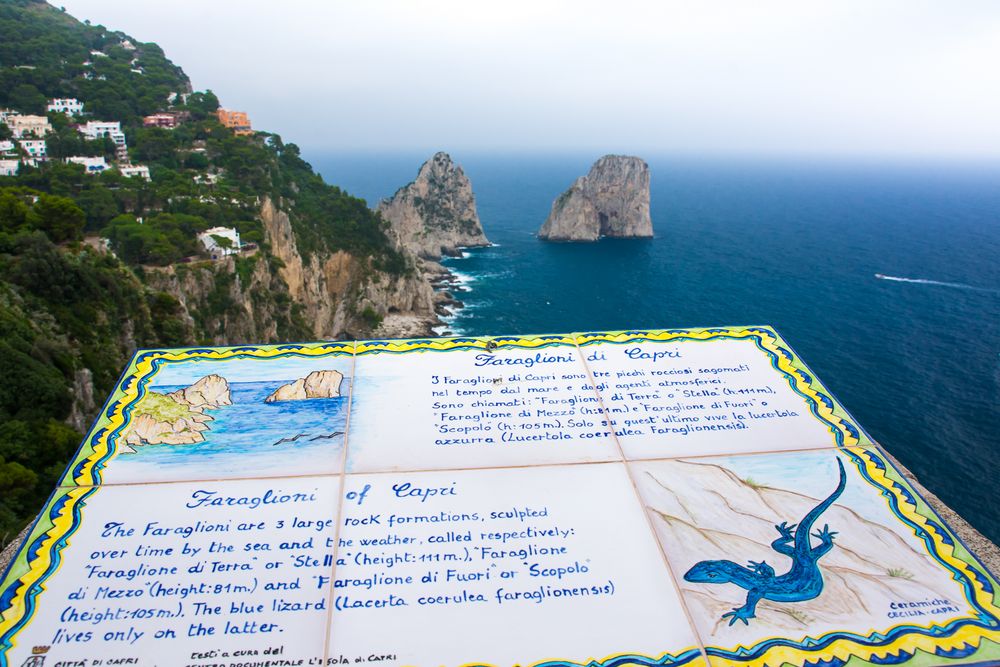 Faraglioni di Capri
I Faraglioni di Capri sono tre picchi rocciosi sagomati
nel tempo dal mare e dagli agenti atmosferici.
Sono chiamati: "Faraglione di Terra" o "Stella" (h:111m),
"Faraglione di Mezzo" (h:81m) e "Faraglione di Fuori" o
"Scopolo" (h:105m). Solo su quest'ultimo vive la lucertola
azzurra (Lucertola coerulea Faraglionensis).
Faraglioni of Capri
The Faraglioni are 3 large rock formations, sculpted
over time by the sea and the weather, called respectively:
"Faraglione di Terra" or "Stella" (height:111m.), "Faraglione
di Mezzo" (height:81m.) and "Faraglione di Fuori" or "Scopolo"
(height:105m.). The blue lizard (Lacerta coerulea faraglionensis)
lives only on the latter.
CITTÀ DI CAPRI
testi a cura del
CENTRO DOCUMENTALE L'ISOLA DI CAPRI
ceramiche
CECILIA-CAPRI